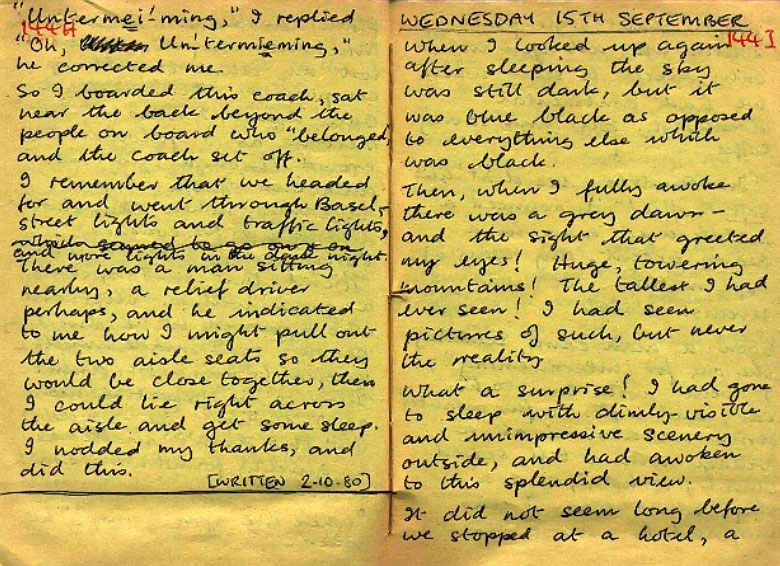 "Untermei'-ming," I replied
144H
"Oh, Un'-termieming,"
he corrected me.
So I boarded this coach, sat
near the back beyond the
people on board who "belonged,"
and the coach set off.
I remember that we headed
for and went through Basel,-
street lights and traffic lights,
which seemed to go on & on
and more lights in the dark night.
There was a man sitting
nearby, a relief driver
perhaps, and he indicated
to me how I might pull out
the two aisle seats so they
would be close together, then
I could lie right across
the aisle and get some sleep.
I nodded my thanks, and
did this.
[WRITTEN 2-10-80]
WEDNESDAY 15TH SEPTEMBER
144I
When I looked up again
after sleeping the sky
was still dark, but it
was blue black as opposed
to everything else which
was black.
Then, when I fully awoke
there was a grey dawn -
and the sight that greeted
my eyes! Huge, towering
mountains! The tallest I had
ever seen! I had seen
pictures of such, but never
the reality.
What a surprise! I had gone
to sleep with dimly-visible
and unimpressive scenery
outside, and had awoken
to this splendid view.
It did not seem long before
we stopped at a hotel, a